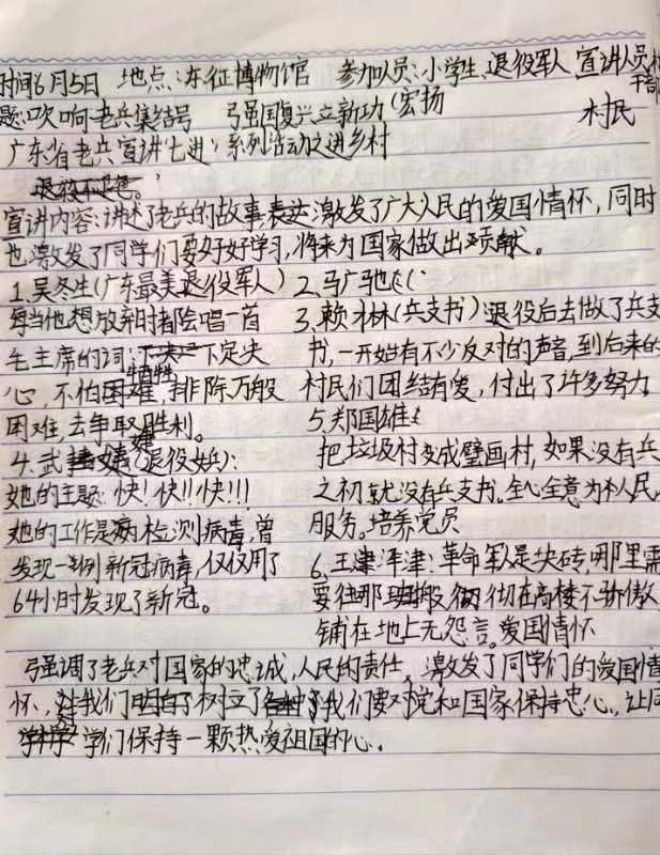 时间6月5日 地点:东征博物馆 参加人员:小学生、退役军人 宣讲人员
干部
题:吹响老兵集结号 强国复兴立新功(宏扬
村民
广东省老兵宣讲"七进")系列活动之进乡村
宣讲内容:讲述了老兵的故事,激发了广大人民的爱国情怀,同时
也激发了同学们要好好学习,将来为国家做出贡献。
1.吴冬生(广东最美退役军人) 2.马广驰
每当他想放弃时都会唱一首 3.赖林(兵支书)退役后去做了兵支
毛主席的词: 下定决 书,一开始有不少反对的声音,到后来的
心,不怕牺牲,排除万般 村民们团结有爱,付出了许多努力
困难,去争取胜利。 5.郑国雄
4.武婧(退役女兵): 把垃圾村变成壁画村,如果没有兵
她的主题:快!快!!快!!! 之初就没有兵支书。全心全意为村民
她的工作是病检测病毒,曾 服务。培养党员
发现一例新冠病毒,仅仅用了 6.王津津:革命军人是块砖,哪里需
64小时发现了新冠。 要往哪搬,砌在高楼不骄傲
铺在地上无怨言。爱国情怀
强调了老兵对国家的忠诚,人民的责任,激发了同学们的爱国情
怀,让我们明白了树立了我们要对党和国家保持忠心,让同
学们保持一颗热爱祖国的心。